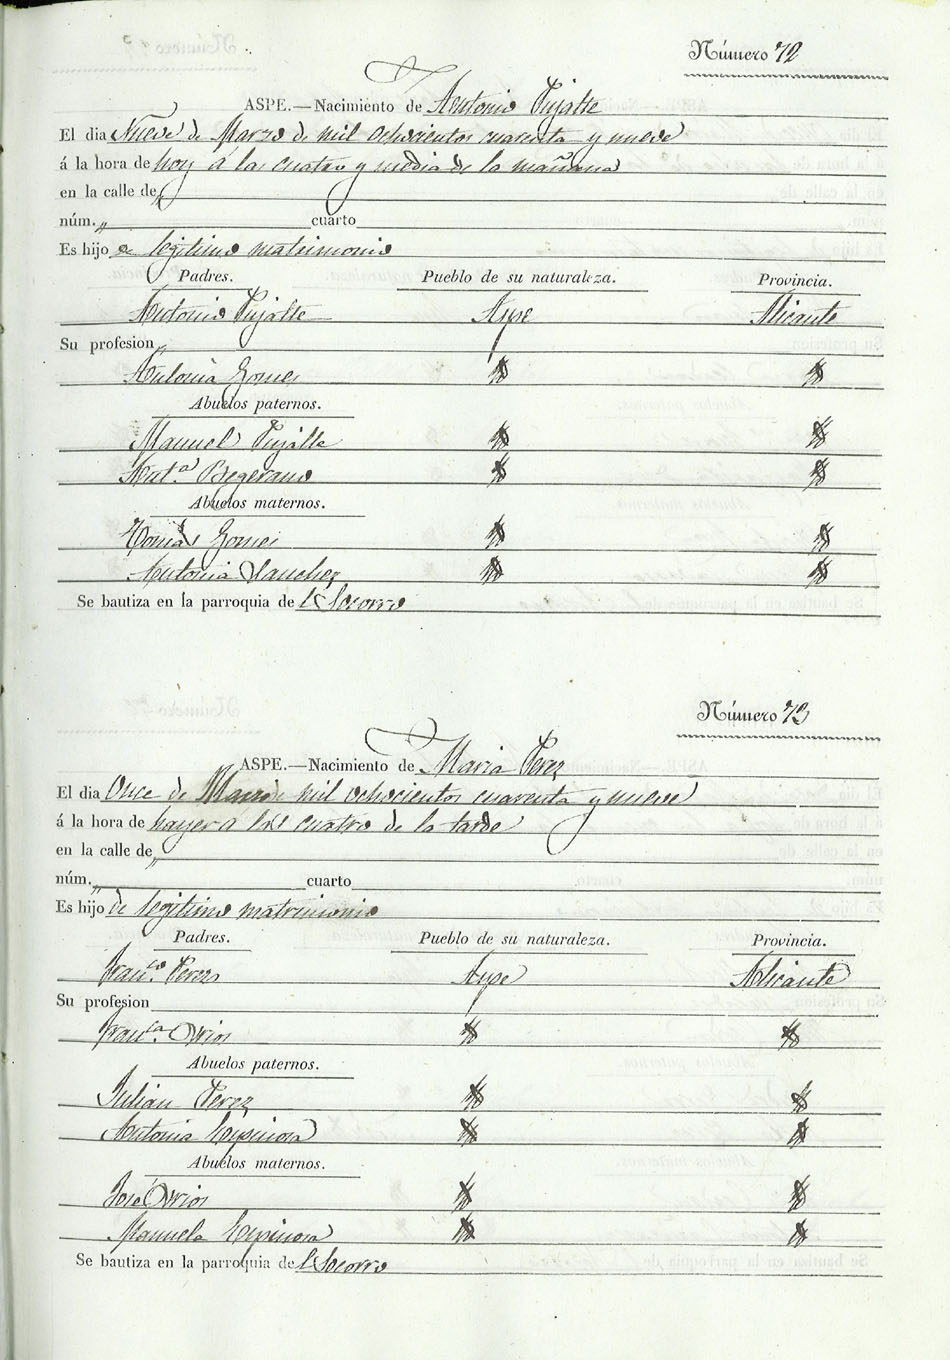 Número 72
ASPE.—Nacimiento de Antonio Pujalte
El dia Nueve de Marzo de mil ochocientos cuarenta y nueve
á la hora de hoy á las cuatro y media de la mañana
en la calle de "
núm. " cuarto
Es hijo de legitimo matrimonio
Padres. Pueblo de su naturaleza. Provincia.
Antonio Pujalte Aspe Alicante
Su profesion "
Antonia Gomes
Abuelos paternos.
Manuel Pujalte
Ant.a Begerano
Abuelos maternos.
Tomás Gomes
Antonia Sanchez
Se bautiza en la parroquia del Socorro
Número 73
ASPE.—Nacimiento de Maria Perez
El dia Once de Marzo de mil ochocientos cuarenta y nueve
á la hora de hayer a las cuatro de la tarde
en la calle de "
núm. " cuarto
Es hijo de legitimo matrimonio
Padres. Pueblo de su naturaleza. Provincia.
Fran.co Peres Aspe Alicante
Su profesion
Fran.ca Orios
Abuelos paternos.
Julian Perez
Antonia Espinosa
Abuelos maternos.
José Orios
Manuela Espinosa
Se bautiza en la parroquia del Socorro